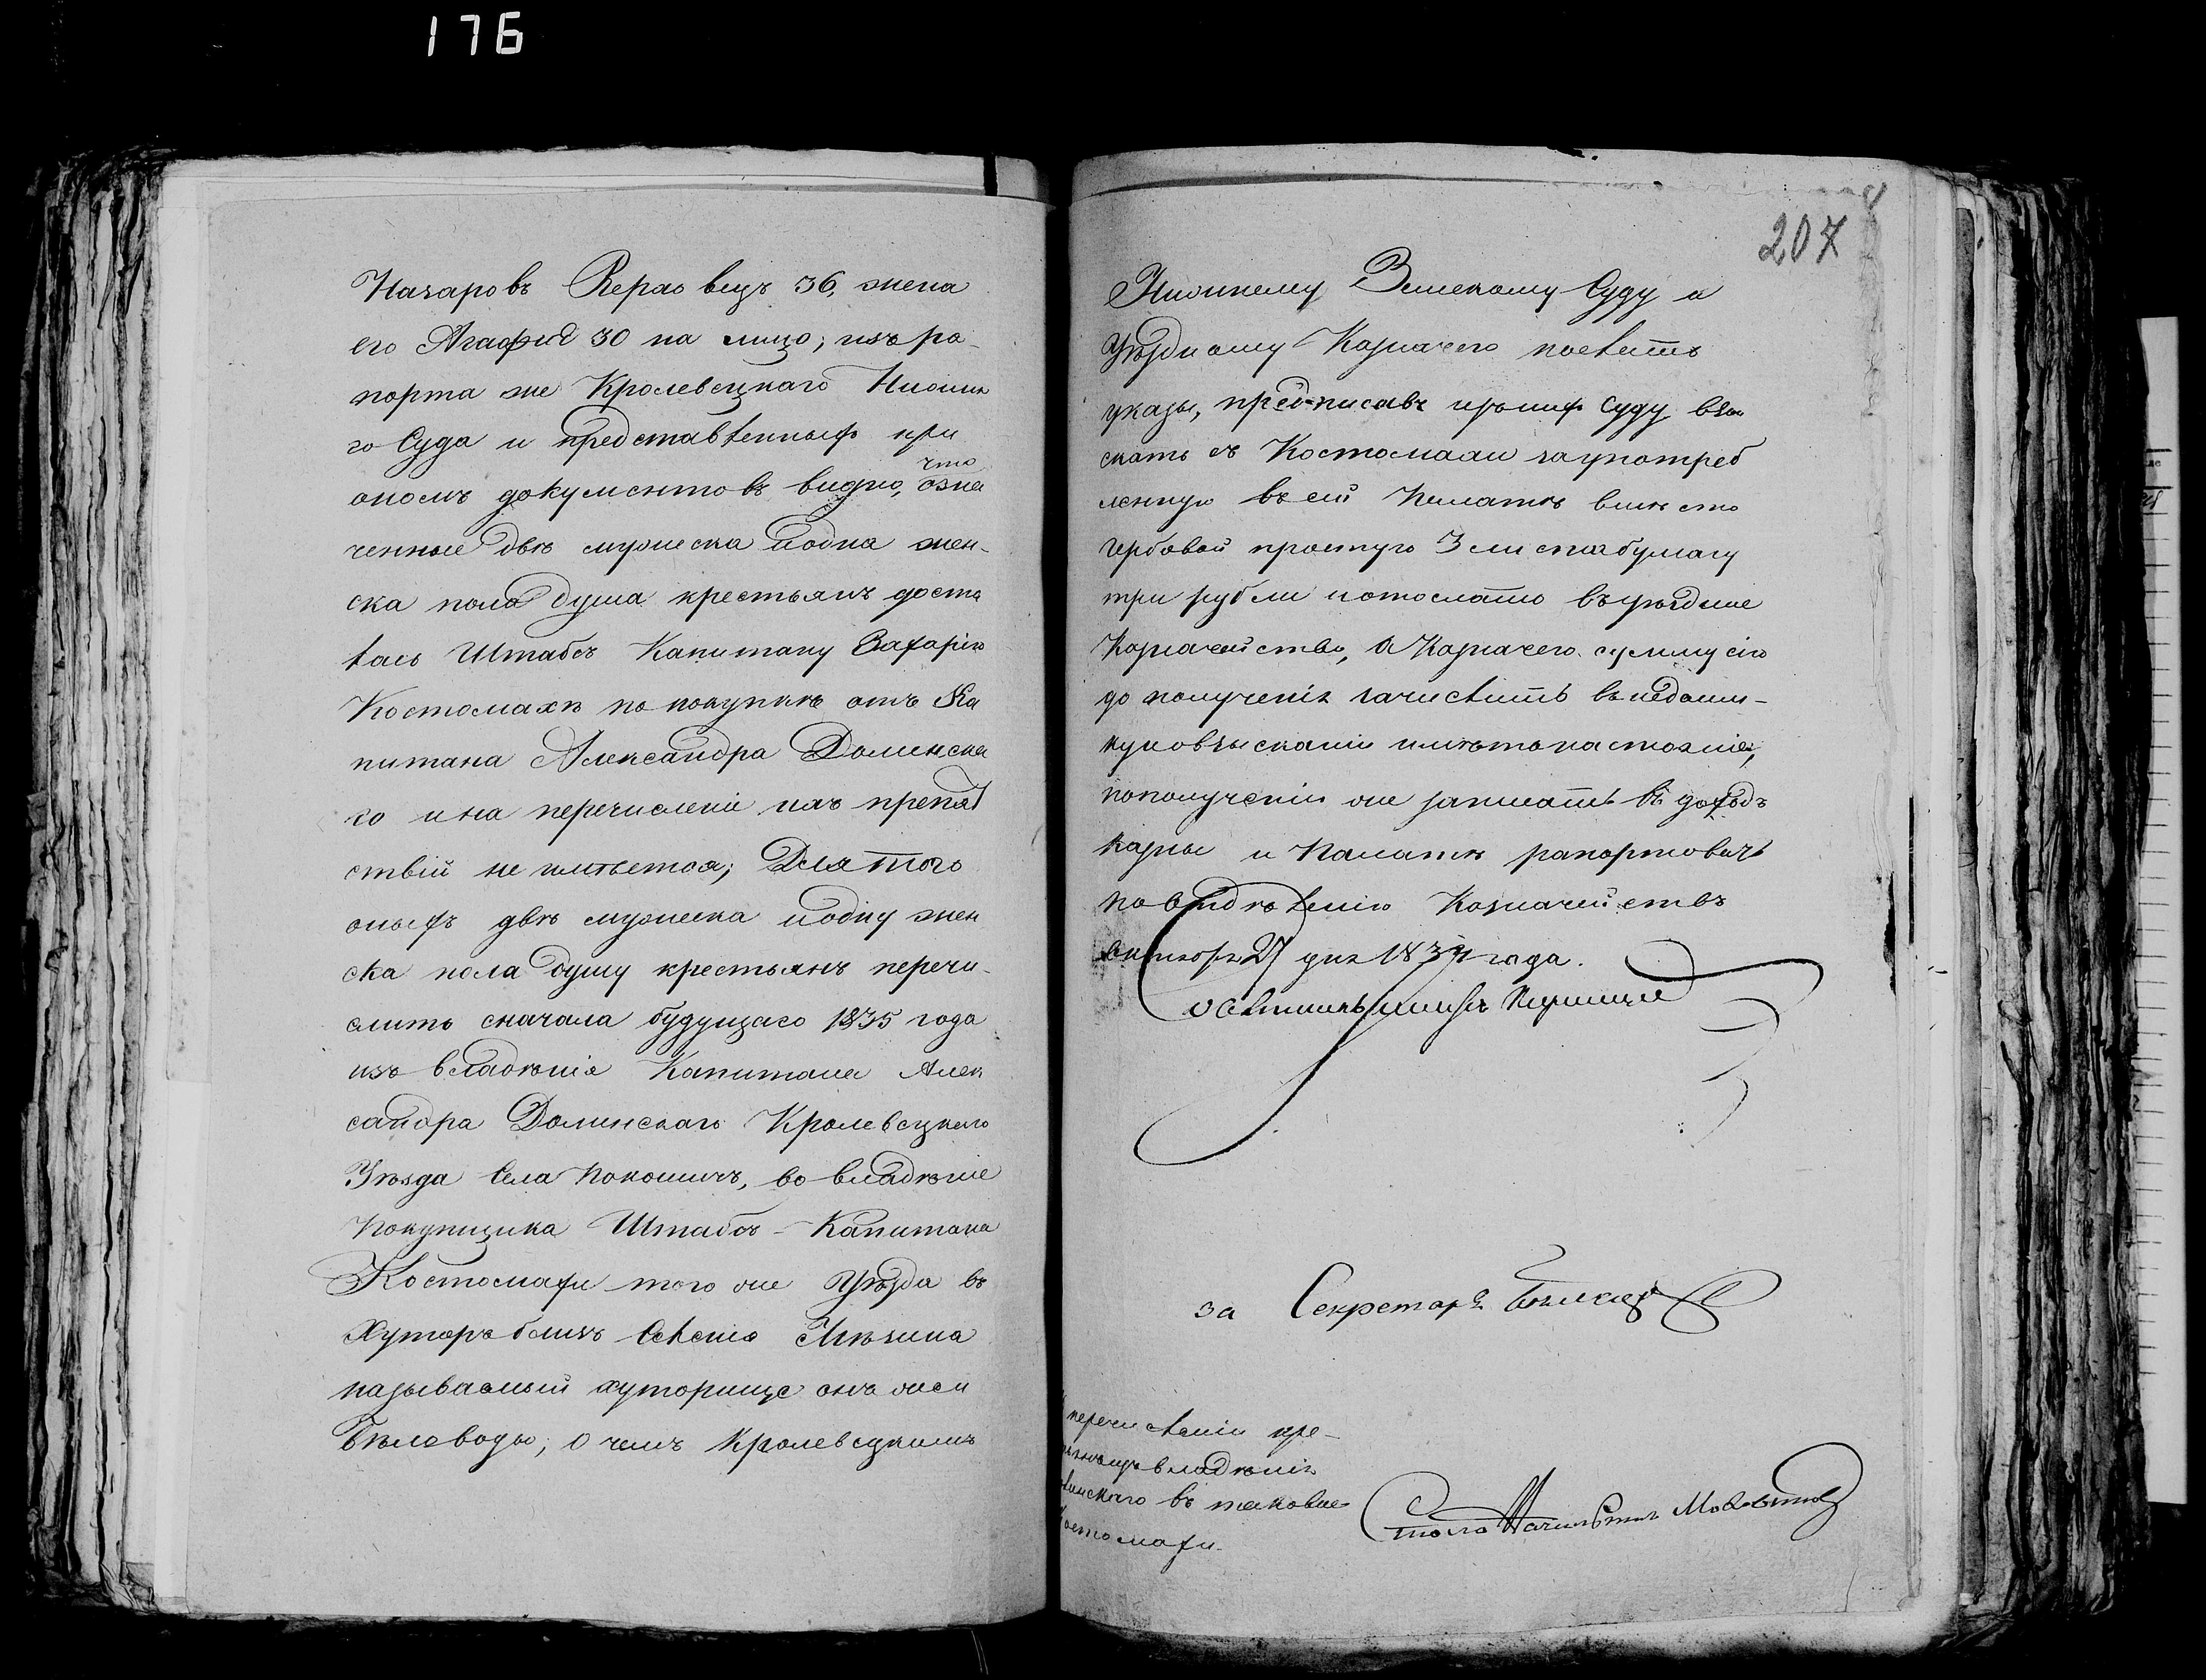 176
Назаровъ 36, жена
его Агафия 30 на лицо; изъ ра-
порта же Кролевецкаго Нижня
го Суда и представленныхъ при
ономъ документовъ видно, что озна
ченные двѣ мужеска и одна жен-
ска пола душа крестьянъ доста
лась Штабсъ Капитану Захарію
Костомахѣ по покупкѣ отъ Ка
питана Александра Долинска
го и на перечисленіе ихъ препят
ствій не имѣется; Для того
оныхъ двѣ мужеска и одну жен
ска пола душу крестьянъ перечи-
слить сначала будущаго 1835 года
изъ владѣнія Капитана Алек
сандра Долинскаго Кролевецкаго
Уѣзда Села Покошичъ, во владѣніе
покупщика Штабсъ-Капитана
Костомахи того же Уѣзда въ
Хуторъ близъ Селенія
называемый хуторище
Бѣловоды; О чемъ Кролевецкимъ
207
Нижнему Земскому Суду и
Уѣздному Казначею послать
указы, предписавъ Суду взы
скать съ Костомахи за употреб
ленную въ сей Палатѣ вмѣсто
гербовой простую 3 листа бумагу
три рубли и отослать въ уѣздное
Казначейство, а Казначею сумму сію
до полученія зачислить въ недоим-
ку и о взысканіи имѣть настояніе,
по полученіи же записать въ доходъ
казны и Палатѣ рапортовать
по отдѣленію Казначействъ
27 дня 1834 года.
за Секретаря
перечисленіи кре-
владѣнія
линскаго въ таковое
Костомахи.
Столоначальникъ